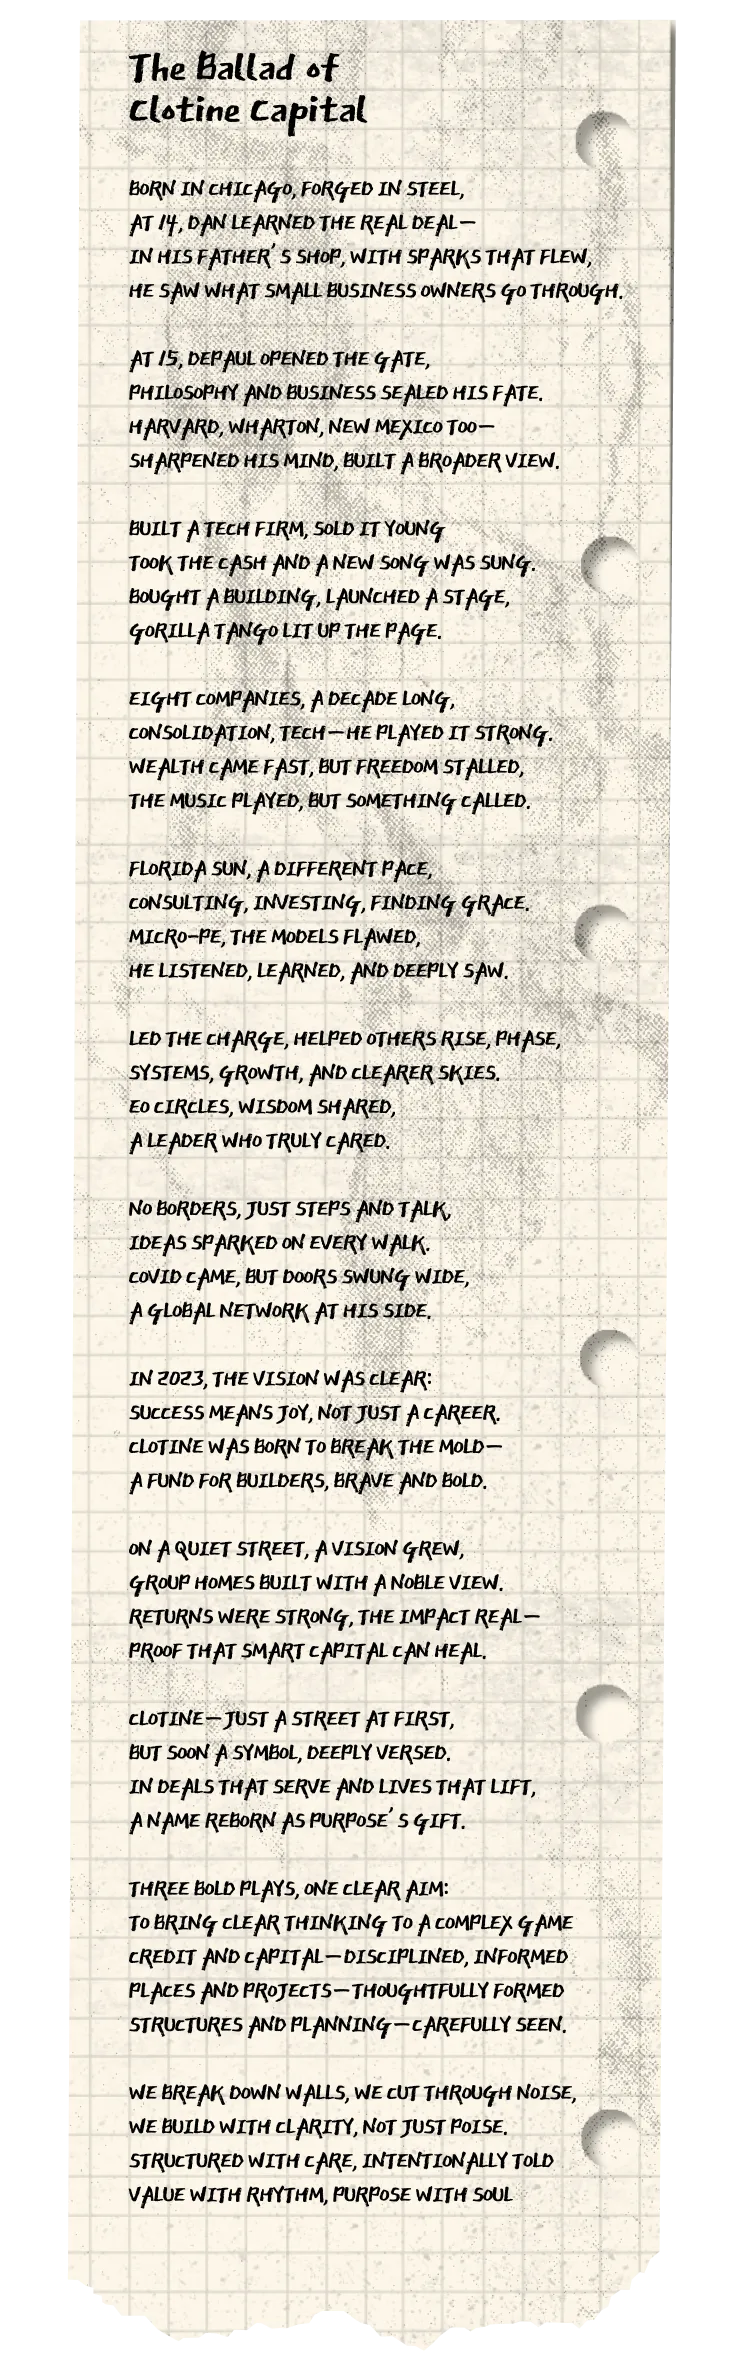 The Ballad of
Clotine Capital
BORN IN CHICAGO, FORGED IN STEEL,
AT 14, DAN LEARNED THE REAL DEAL—
IN HIS FATHER'S SHOP, WITH SPARKS THAT FLEW,
HE SAW WHAT SMALL BUSINESS OWNERS GO THROUGH.
AT 15, DEPAUL OPENED THE GATE,
PHILOSOPHY AND BUSINESS SEALED HIS FATE.
HARVARD, WHARTON, NEW MEXICO TOO—
SHARPENED HIS MIND, BUILT A BROADER VIEW.
BUILT A TECH FIRM, SOLD IT YOUNG
TOOK THE CASH AND A NEW SONG WAS SUNG.
BOUGHT A BUILDING, LAUNCHED A STAGE,
GORILLA TANGO LIT UP THE PAGE.
EIGHT COMPANIES, A DECADE LONG,
CONSOLIDATION, TECH—HE PLAYED IT STRONG.
WEALTH CAME FAST, BUT FREEDOM STALLED,
THE MUSIC PLAYED, BUT SOMETHING CALLED.
FLORIDA SUN, A DIFFERENT PACE,
CONSULTING, INVESTING, FINDING GRACE.
MICRO-PE, THE MODELS FLAWED,
HE LISTENED, LEARNED, AND DEEPLY SAW.
LED THE CHARGE, HELPED OTHERS RISE, PHASE,
SYSTEMS, GROWTH, AND CLEARER SKIES.
EO CIRCLES, WISDOM SHARED,
A LEADER WHO TRULY CARED.
NO BORDERS, JUST STEPS AND TALK,
IDEAS SPARKED ON EVERY WALK.
COVID CAME, BUT DOORS SWUNG WIDE,
A GLOBAL NETWORK AT HIS SIDE.
IN 2023, THE VISION WAS CLEAR:
SUCCESS MEANS JOY, NOT JUST A CAREER.
CLOTINE WAS BORN TO BREAK THE MOLD—
A FUND FOR BUILDERS, BRAVE AND BOLD.
ON A QUIET STREET, A VISION GREW,
GROUP HOMES BUILT WITH A NOBLE VIEW.
RETURNS WERE STRONG, THE IMPACT REAL—
PROOF THAT SMART CAPITAL CAN HEAL.
CLOTINE—JUST A STREET AT FIRST,
BUT SOON A SYMBOL, DEEPLY VERSED.
IN DEALS THAT SERVE AND LIVES THAT LIFT,
A NAME REBORN AS PURPOSE'S GIFT.
THREE BOLD PLAYS, ONE CLEAR AIM:
TO BRING CLEAR THINKING TO A COMPLEX GAME
CREDIT AND CAPITAL—DISCIPLINED, INFORMED
PLACES AND PROJECTS—THOUGHTFULLY FORMED
STRUCTURES AND PLANNING—CAREFULLY SEEN.
WE BREAK DOWN WALLS, WE CUT THROUGH NOISE,
WE BUILD WITH CLARITY, NOT JUST POISE.
STRUCTURED WITH CARE, INTENTIONALLY TOLD
VALUE WITH RHYTHM, PURPOSE WITH SOUL